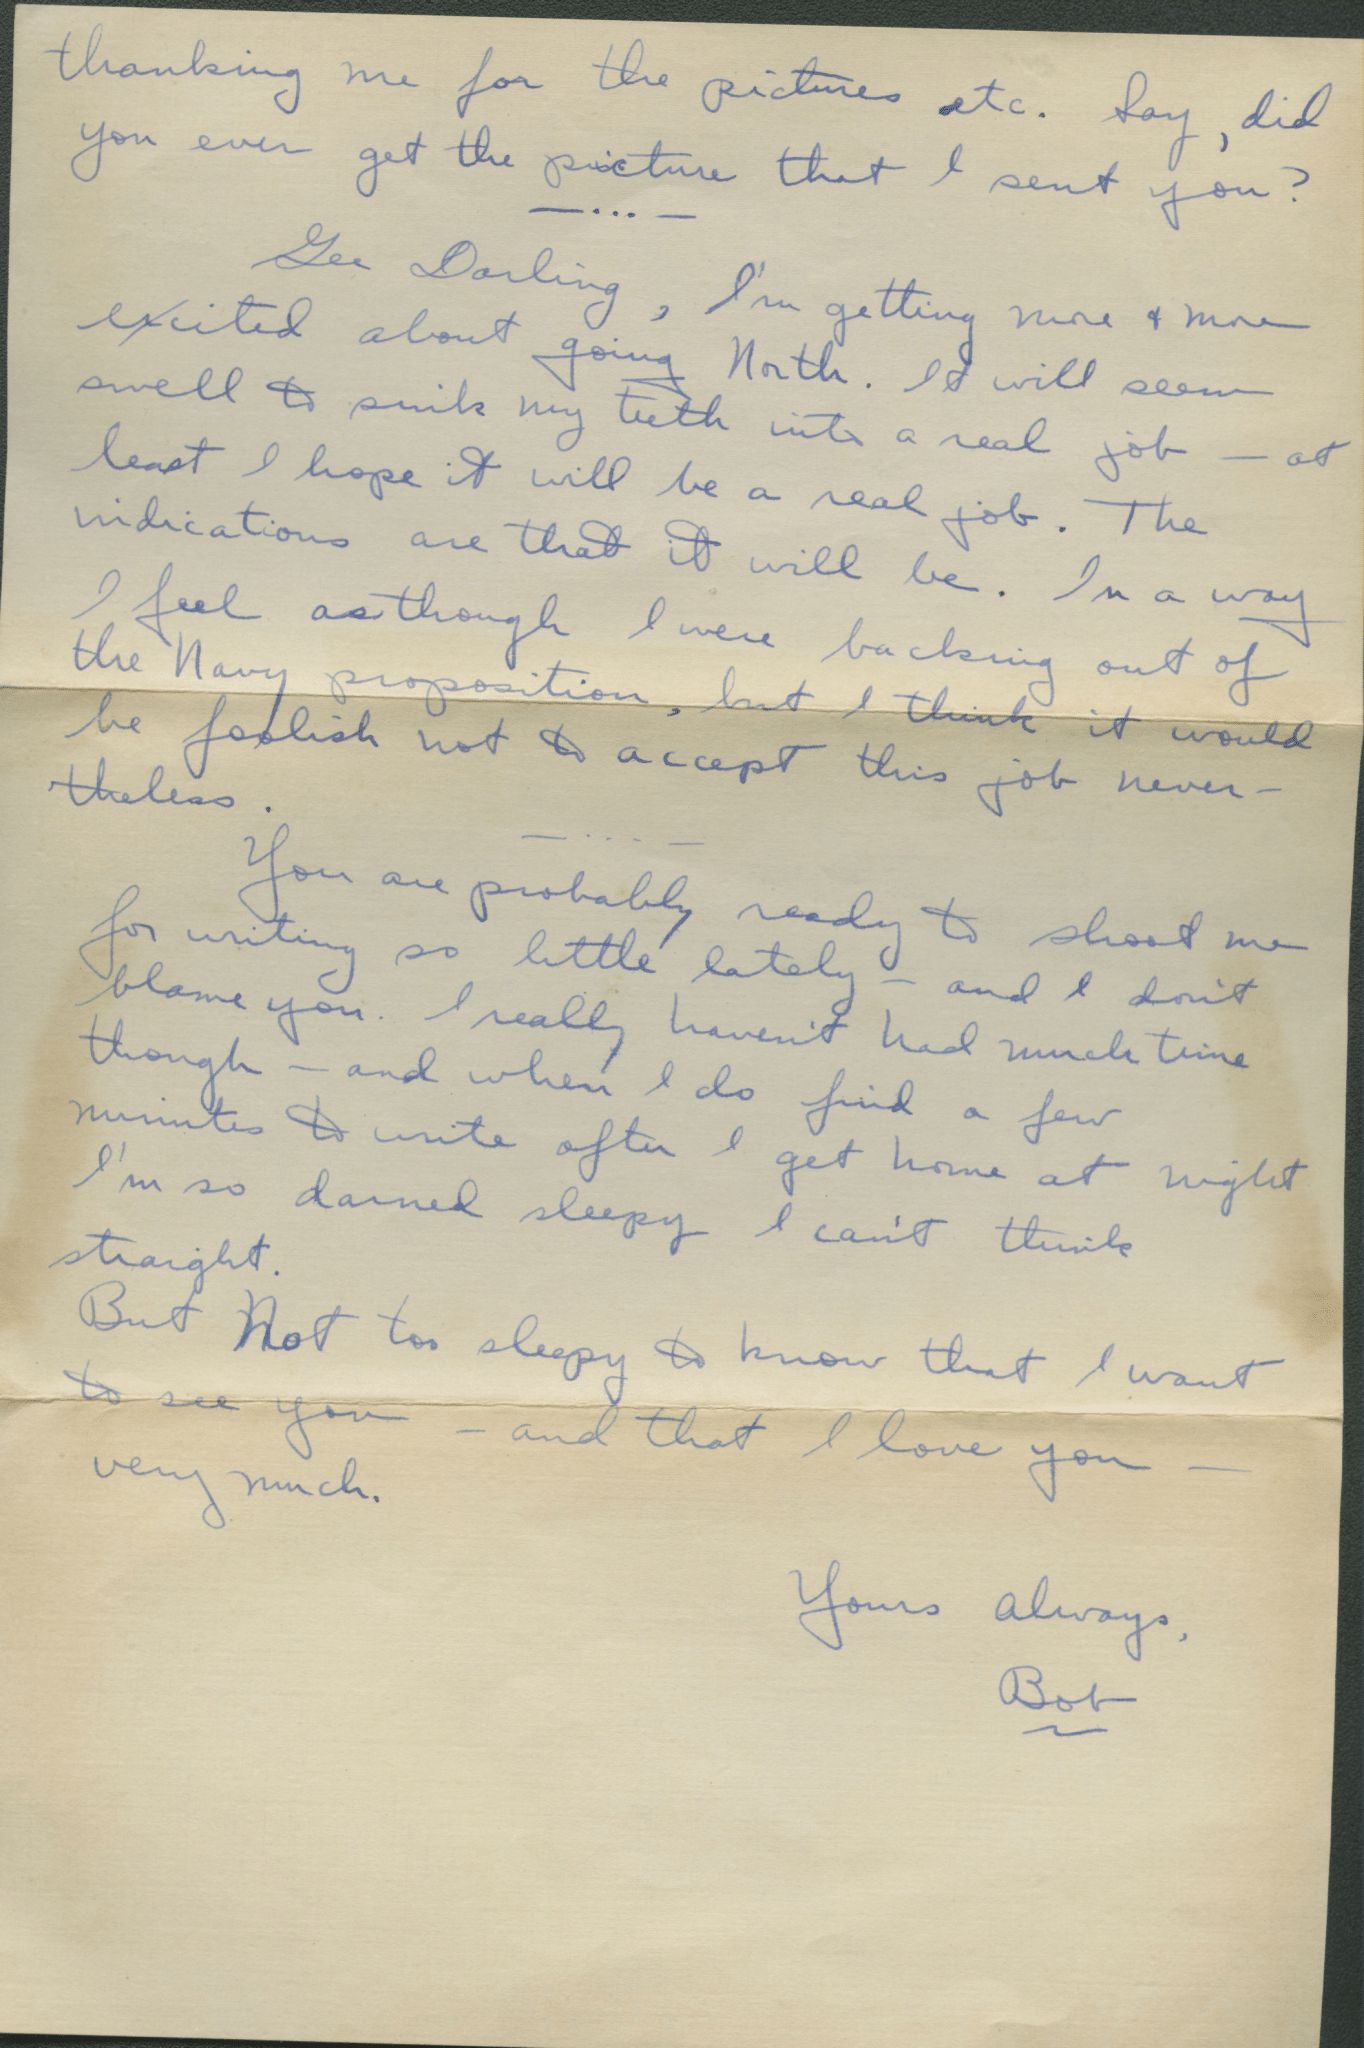 thanking me for the pictures etc. Say, did
you ever get the picture that I sent you?
— ... —
Gee Darling, I'm getting more & more
excited about going North. It will seem
swell to sink my teeth into a real job — at
least I hope it will be a real job. The
indications are that it will be. In a way
I feel as though I were backing out of
the Navy proposition, but I think it would
be foolish not to accept this job never-
theless.
— ... —
You are probably ready to shoot me
for writing so little lately — and I don't
blame you. I really haven't had much time
though — and when I do find a few
minutes to write after I get home at night
I'm so darned sleepy I can't think
straight.
But Not too sleepy to know that I want
to see you — and that I love you —
very much.
Yours always,
Bob